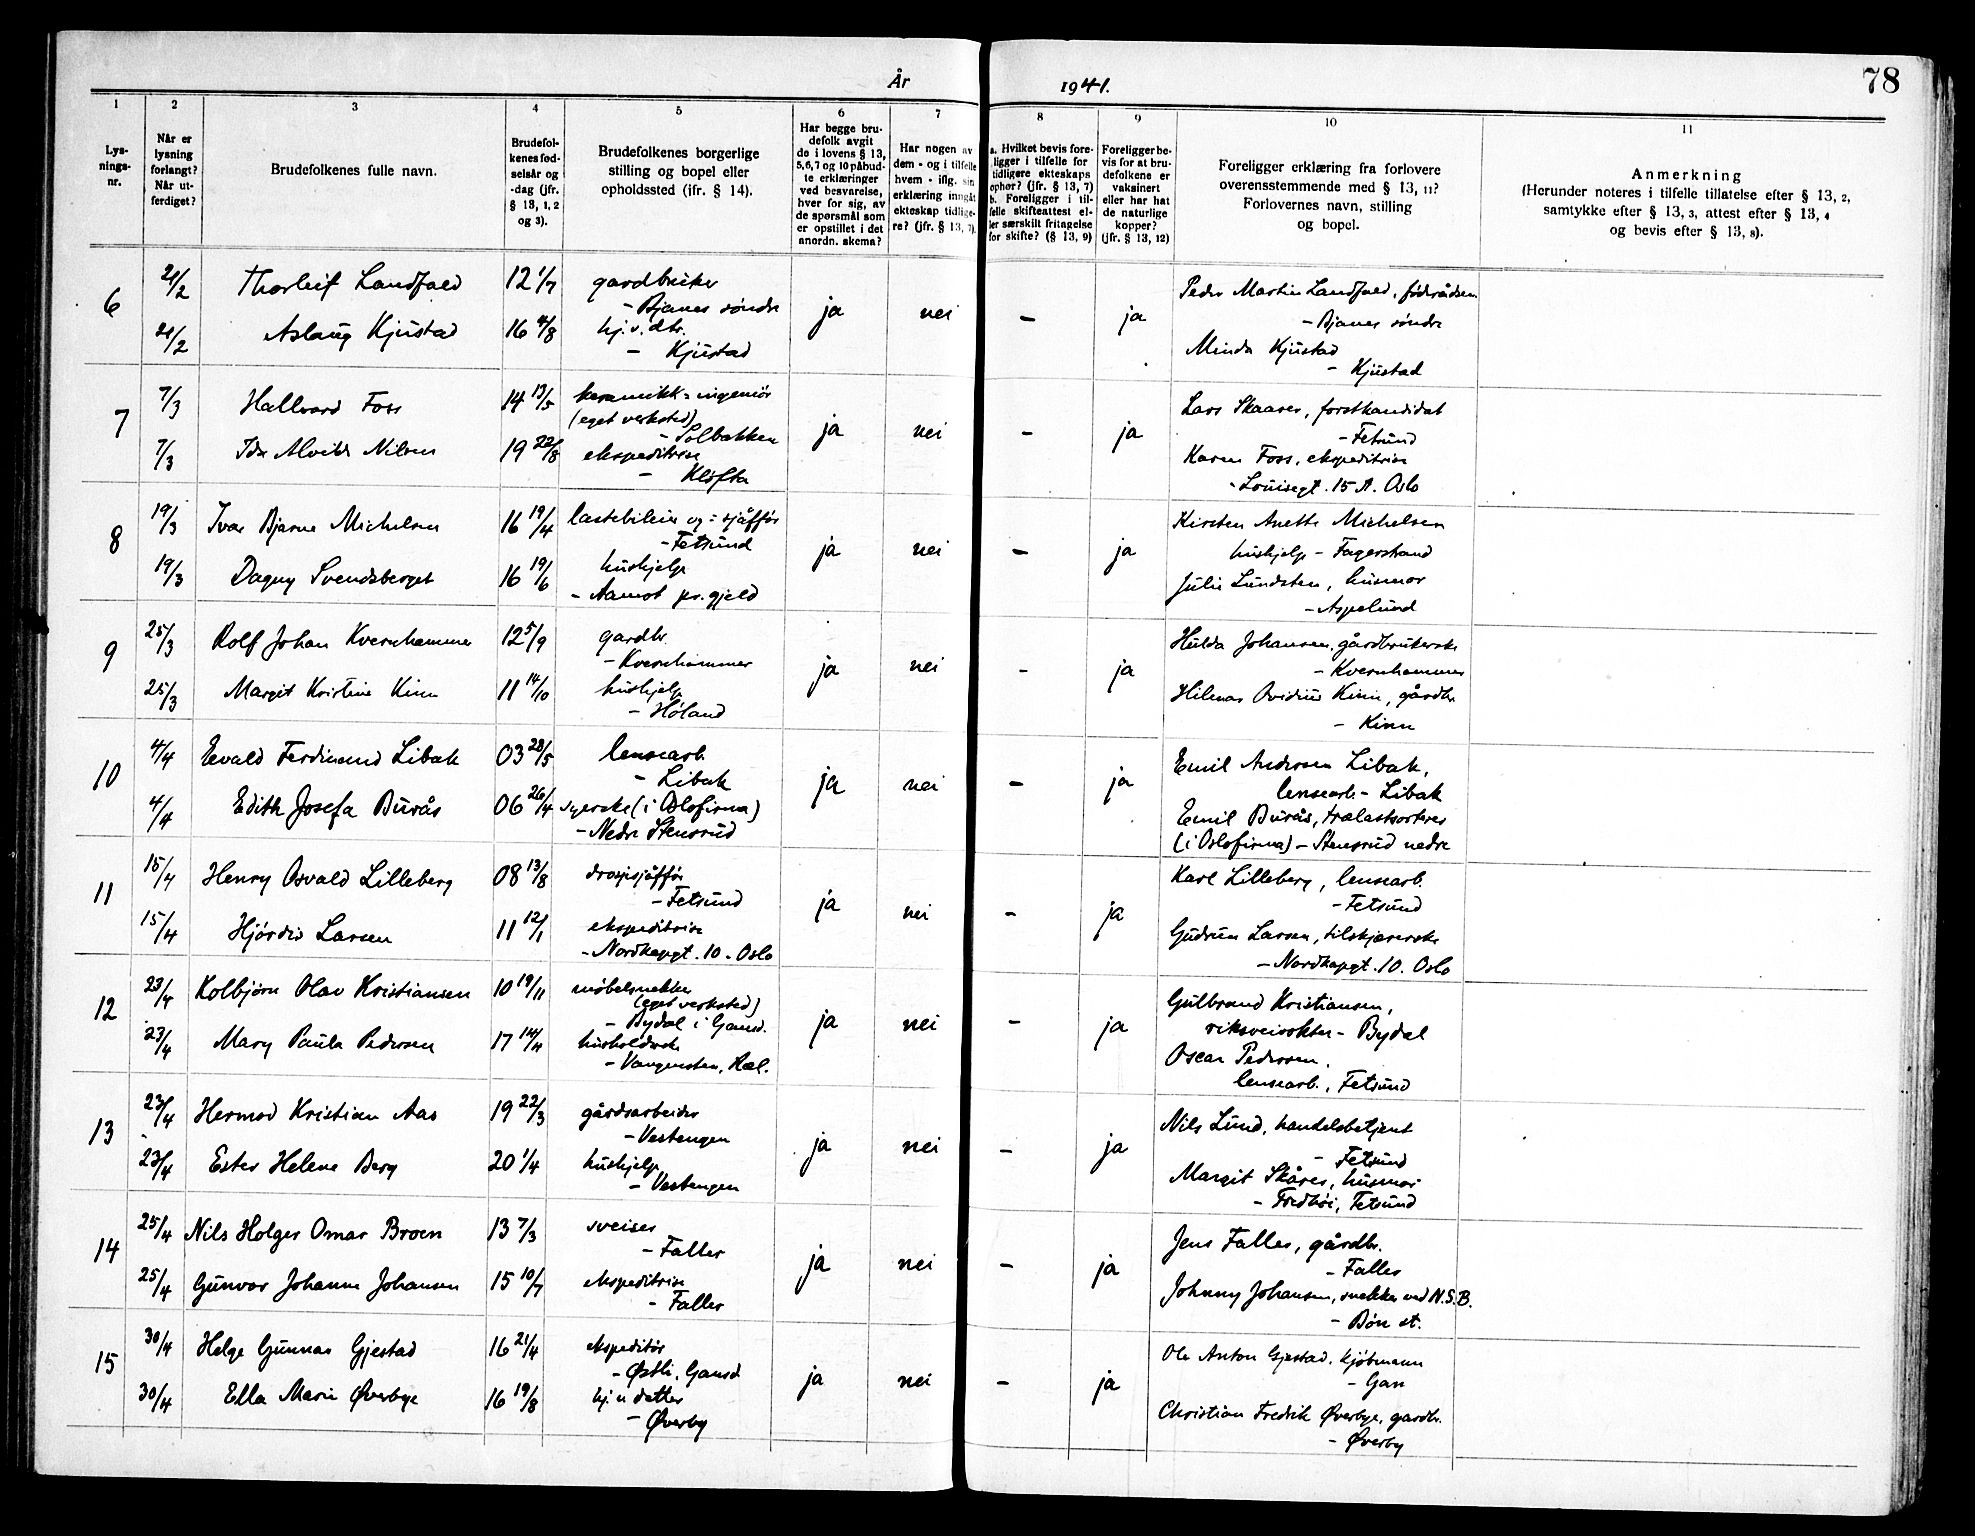 År 1941. 78
1 2 3 4 5 6 7 8 9 10 11
Lys-
nings-
nr.
Når er
lysning
forlangt?
Når ut-
ferdiget?
Brudefolkenes fulle navn.
Brudefol-
kenes fød-
selsår og
-dag (jfr.
§ 13, 1, 2
og 3).
Brudefolkenes borgerlige
stilling og bopel eller
opholdssted (jfr. § 14).
Har begge bru-
defolk avgit
de i lovens § 13,
5,6,7 og 10 påbud-
te erklæringer
ved besvarelse,
hver for sig, av
de spørsmål som
er opstillet i det
anordn. skema?
Har nogen av
dem - og i tilfelle
hvem - iflg. sin
erklæring inngått
ekteskap tidlige-
re? (jfr. § 13, 7).
a. Hvilket bevis fore-
ligger i tilfelle for
tidligere ekteskaps
ophør? (jfr. § 13, 7)
b. Foreligger i til-
felle skifteattest el-
ler særskilt fritagelse
for skifte? (§ 13, 9)
Foreligger be-
vis for at bru-
defolkene er
vaksinert
eller har hat
de naturlige
kopper?
(jfr. § 13, 12)
Foreligger erklæring fra forlovere
overensstemmende med § 13, 11?
Forlovernes navn, stilling
og bopel.
Anmerkning
(Herunder noteres i tilfelle tillatelse efter § 13, 2,
samtykke efter § 13, 3, attest efter § 13, 4
og bevis efter § 13, 8).
6 21/2 Thorleif Landfald 12 1/7 gardbruker
- Bjanes søndre
21/2 Aslaug Kjustad 16 4/8 hj.v. dtr.
- Kjustad
ja nei - ja
Peder Martin Landfald, føderådsm.
- Bjanes søndre
Minda Kjustad
- Kjustad
7 7/3 Hallvard Foss 14 13/5 keramikk-ingeniør
(eget verksted)
- Solbakken
7/3 Ida Alvilde Nilsen 19 22/8 ekspeditrise
- Kløfta
ja nei - ja
Lars Skaarer, forstkandidat
- Fetsund
Karen Foss, ekspeditrise
- Louisegt. 15 A. Oslo
8 19/3 Ivar Bjarne Michelsen 16 19/4 lastebileier og -sjåffør
- Fetsund
19/3 Dagny Svendsberget 16 19/6 hushjelp
- Aamot pr.gjeld
ja nei - ja
Kirsten Anette Michelsen
hushjelp - Fagerstrand
Julie Lundsten, husmor
- Aspelund
9 25/3 Rolf Johan Kvernhammer 12 5/9 gardbr.
- Kvernhammer
25/3 Margit Kristine Kinn 11 14/10 hushjelp
- Høland
ja nei - ja
Hulda Johansen, gårdbrukerske
- Kvernhammer
Hilmar Ovidius Kinn, gårdbr.
- Kinn
10 4/4 Evald Ferdinand Libak 03 28/5 lensearb.
- Libak
4/4 Edith Josefa Burås 06 26/4 syerske (i Oslofirma)
- Nedre Stensrud
ja nei - ja
Emil Andersen Libak,
lensearb. - Libak
Emil Burås, trælastsorterer
(i Oslofirma) - Stensrud nedre
11 15/4 Henry Osvald Lilleberg 08 13/8 drosjesjåffør
- Fetsund
15/4 Hjørdis Larsen 11 12/1 ekspeditrise
- Nordkapgt. 10 - Oslo
ja nei - ja
Karl Lilleberg, lensearb.
- Fetsund
Gudrun Larsen, tilskjærerske
- Nordkapgt. 10. Oslo
12 23/4 Kolbjørn Olav Kristiansen 10 19/11 møbelsnekker
(eget verksted)
- Bydal i Gansd.
23/4 Mary Paula Pedersen 17 14/4 husholderske
- Vangensten, Ræl.
ja nei - ja
Gulbrand Kristiansen,
riksveivokter - Bydal
Oscar Pedersen
lensearb., Fetsund
13 23/4 Hermod Kristian Aas 19 22/3 gårdsarbeider
- Vestengen
23/4 Ester Helene Berg 20 1/4 hushjelp
- Vestengen
ja nei - ja
Nils Lund, handelsbetjent
- Fetsund
Margit Skårer, husmor
- Fredbøi, Fetsund
14 25/4 Nils Holger Omar Broen 13 7/3 sveiser
- Faller
25/4 Gunvor Johanne Johansen 15 10/7 ekspeditrise
- Faller
ja nei - ja
Jens Faller, gårdbr.
- Faller
Johnny Johansen, snekker ved N.S.B.
- Bøn st.
15 30/4 Helge Gunnar Gjestad 16 21/4 ekspeditør
- Østli, Gansd
30/4 Ella Marie Øverbye 16 19/8 hj.v. datter
- Øverby
ja nei - ja
Ole Anton Gjestad, kjøbmann
- Gan
Christian Fredrik Øverbye, gardbr.
- Øverby